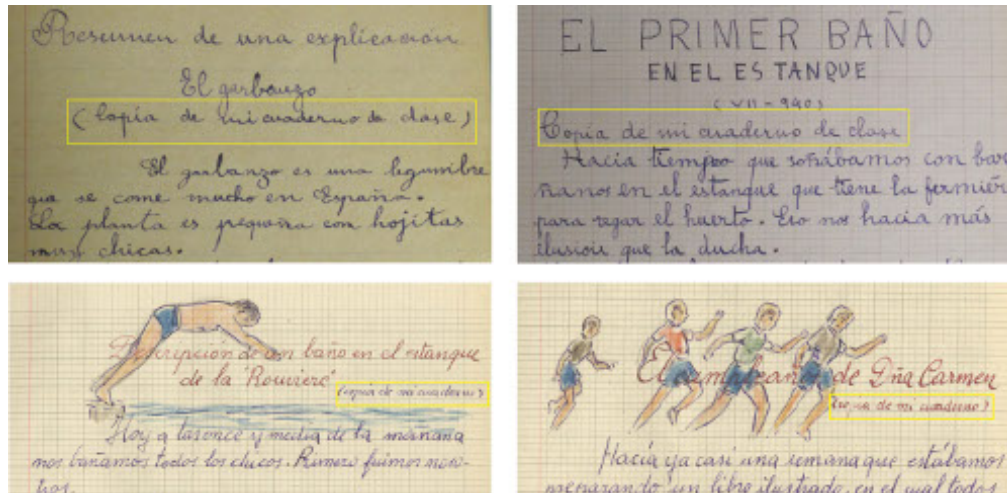 Resumen de una explicación
El garbanzo
(Copia de mi cuaderno de clase)
El garbanzo es una legumbre
que se come mucho en España.
La planta es pequeña con hojitas
muy chicas.
EL PRIMER BAÑO
EN EL ESTANQUE
(VII-940)
Copia de mi cuaderno de clase
Hacía tiempo que soñábamos con bañ
ñanos en el estanque que tiene la fermièr
para regar el huerto. Eso nos hacía más
ilusión que la ducha.
Descripción de un baño en el estanque
de la "Rouviere"
(copia de mi cuaderno)
Hoy a las once y media de la mañana
nos bañamos todos los chicos. Primero fuimos noso-
tros.
El cumpleaños de Dña Carmen
(copia de mi cuaderno)
Hacía ya casi una semana que estábamos
preparando un libro ilustrado, en el cual todos